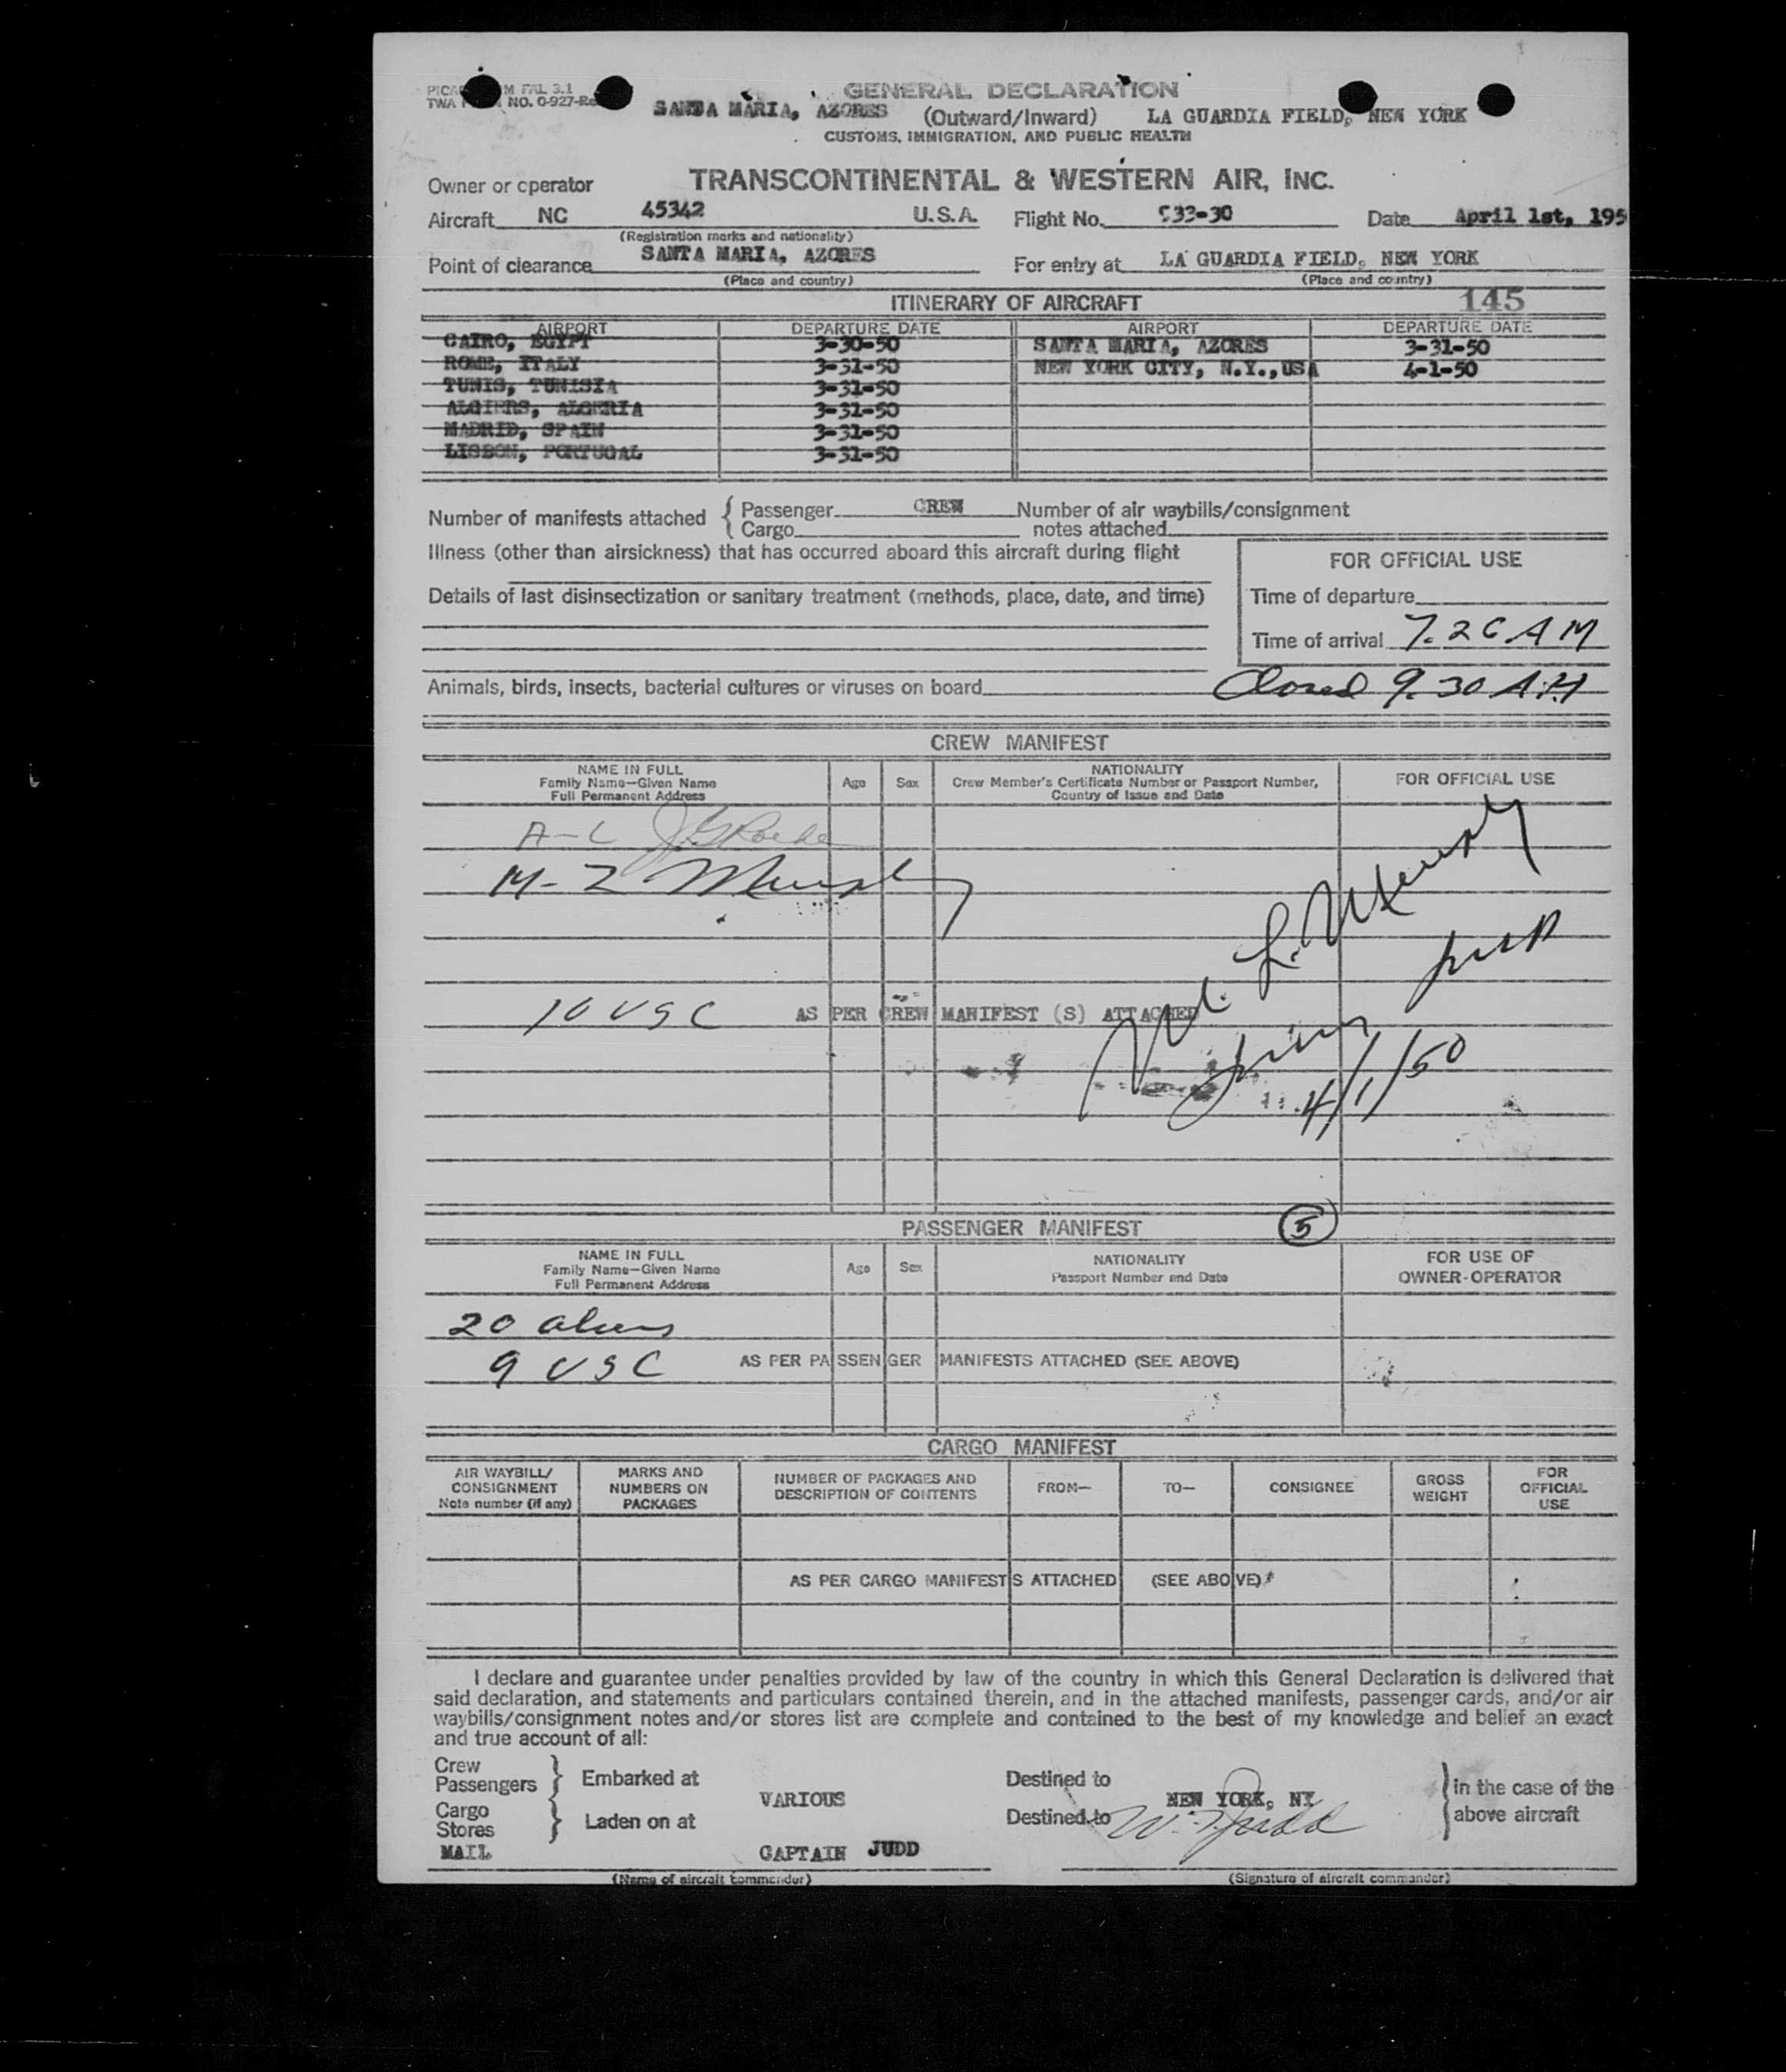 GENERAL DECLARATION
SANTA MARIA, AZORES (Outward/Inward) LA GUARDIA FIELD, NEW YORK
CUSTOMS, IMMIGRATION, AND PUBLIC HEALTH
FAL 3.1
TWA NO. 0-927-Re
Owner or operator TRANSCONTINENTAL & WESTERN AIR, INC.
Aircraft NC 45342 U.S.A. Flight No. 933-30 Date April 1st, 195
(Registration marks and nationality)
Point of clearance SANTA MARIA, AZORES For entry at LA GUARDIA FIELD, NEW YORK
(Place and country) (Place and country)
ITINERARY OF AIRCRAFT 145
AIRPORT DEPARTURE DATE AIRPORT DEPARTURE DATE
CAIRO, EGYPT 3-30-50 SANTA MARIA, AZORES 3-31-50
ROME, ITALY 3-31-50 NEW YORK CITY, N.Y.,USA 4-1-50
TUNIS, TUNISIA 3-31-50
ALGIERS, ALGERIA 3-31-50
MADRID, SPAIN 3-31-50
LISBON, PORTUGAL 3-31-50
Number of manifests attached { Passenger CREW Number of air waybills/consignment
Cargo notes attached
Illness (other than airsickness) that has occurred aboard this aircraft during flight
FOR OFFICIAL USE
Details of last disinsectization or sanitary treatment (methods, place, date, and time)
Time of departure
Time of arrival 7.26 AM
Animals, birds, insects, bacterial cultures or viruses on board
Closed 9.30 AM
CREW MANIFEST
NAME IN FULL Age Sex NATIONALITY FOR OFFICIAL USE
Family Name—Given Name Crew Member's Certificate Number or Passport Number,
Full Permanent Address Country of Issue and Date
A-L
M-Z Murphy
M. L. Murphy
10 USC AS PER CREW MANIFEST (S) ATTACHED
4/1/50
PASSENGER MANIFEST 5
NAME IN FULL Age Sex NATIONALITY FOR USE OF
Family Name—Given Name Passport Number and Date OWNER-OPERATOR
Full Permanent Address
20 aliens
9 USC AS PER PASSENGER MANIFESTS ATTACHED (SEE ABOVE)
CARGO MANIFEST
AIR WAYBILL/ MARKS AND NUMBER OF PACKAGES AND FROM— TO— CONSIGNEE GROSS FOR
CONSIGNMENT NUMBERS ON DESCRIPTION OF CONTENTS WEIGHT OFFICIAL
Note number (if any) PACKAGES USE
AS PER CARGO MANIFESTS ATTACHED (SEE ABOVE)
I declare and guarantee under penalties provided by law of the country in which this General Declaration is delivered that
said declaration, and statements and particulars contained therein, and in the attached manifests, passenger cards, and/or air
waybills/consignment notes and/or stores list are complete and contained to the best of my knowledge and belief an exact
and true account of all:
Crew
Passengers } Embarked at Destined to } in the case of the
VARIOUS NEW YORK, NY
Cargo
Stores } Laden on at Destined to above aircraft
W. Judd
MAIL CAPTAIN JUDD
(Name of aircraft commander) (Signature of aircraft commander)